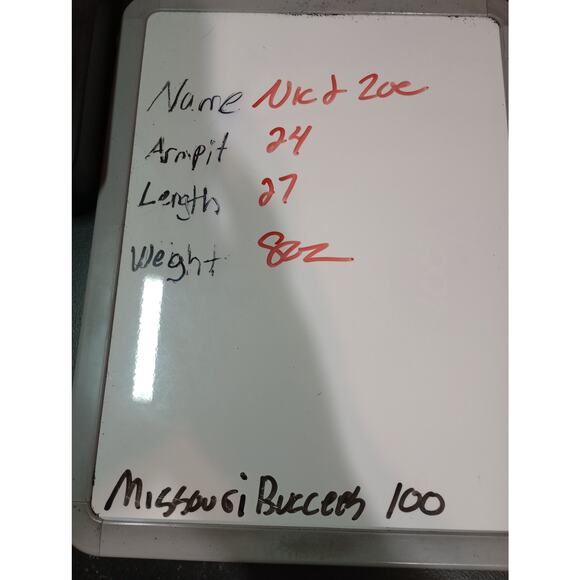 Name Nic & Zoe
Armpit 24
Length 27
Weight 8oz
Missouri Buccees 100